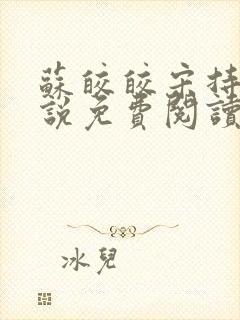 蘇皎皎宋持
說免費閱讀
冰兒